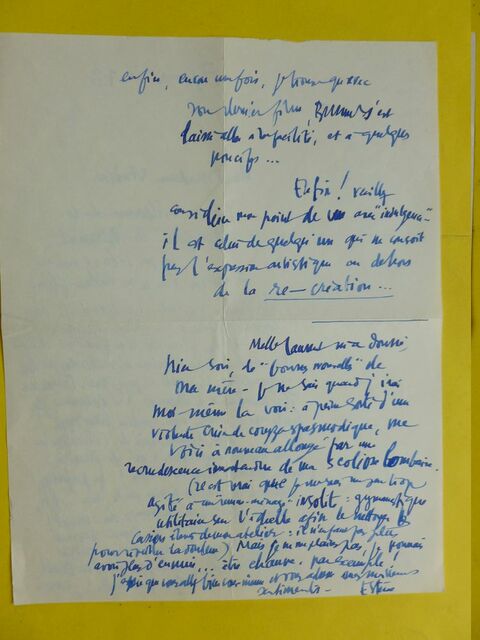 enfin, encore une fois, je trouve qu'avec
son dernier film, s'est
laissé aller à la facilité, et à quelques
poncifs...
Enfin! veuillez
considérer mon point de vue avec "indulgence"
il est celui de quelqu'un qui ne conçoit
pas l'expression artistique en dehors
de la re-création...
Melle Laurent m'a donné,
hier soir, de "bonnes nouvelles" de
ma mère - je ne sais quand j'irai
moi-même la voir: à peine sorti d'une
violente crise de spasmodique, me
voici à nouveau allongé par une
recrudescence de ma scoliose lombaire.
(il est vrai que je me suis un peu trop
agité à un insolite: gymnastique
utilitaire sur l'échelle afin de nettoyer
de mon atelier: il n'en faut pas plus
pour la douleur) Mais je ne me plains pas, je pourrais
avoir plus d'ennuis... être chauve, par exemple!
j'espère que vous allez bien vous-même et vous adresse mes meilleurs
sentiments -